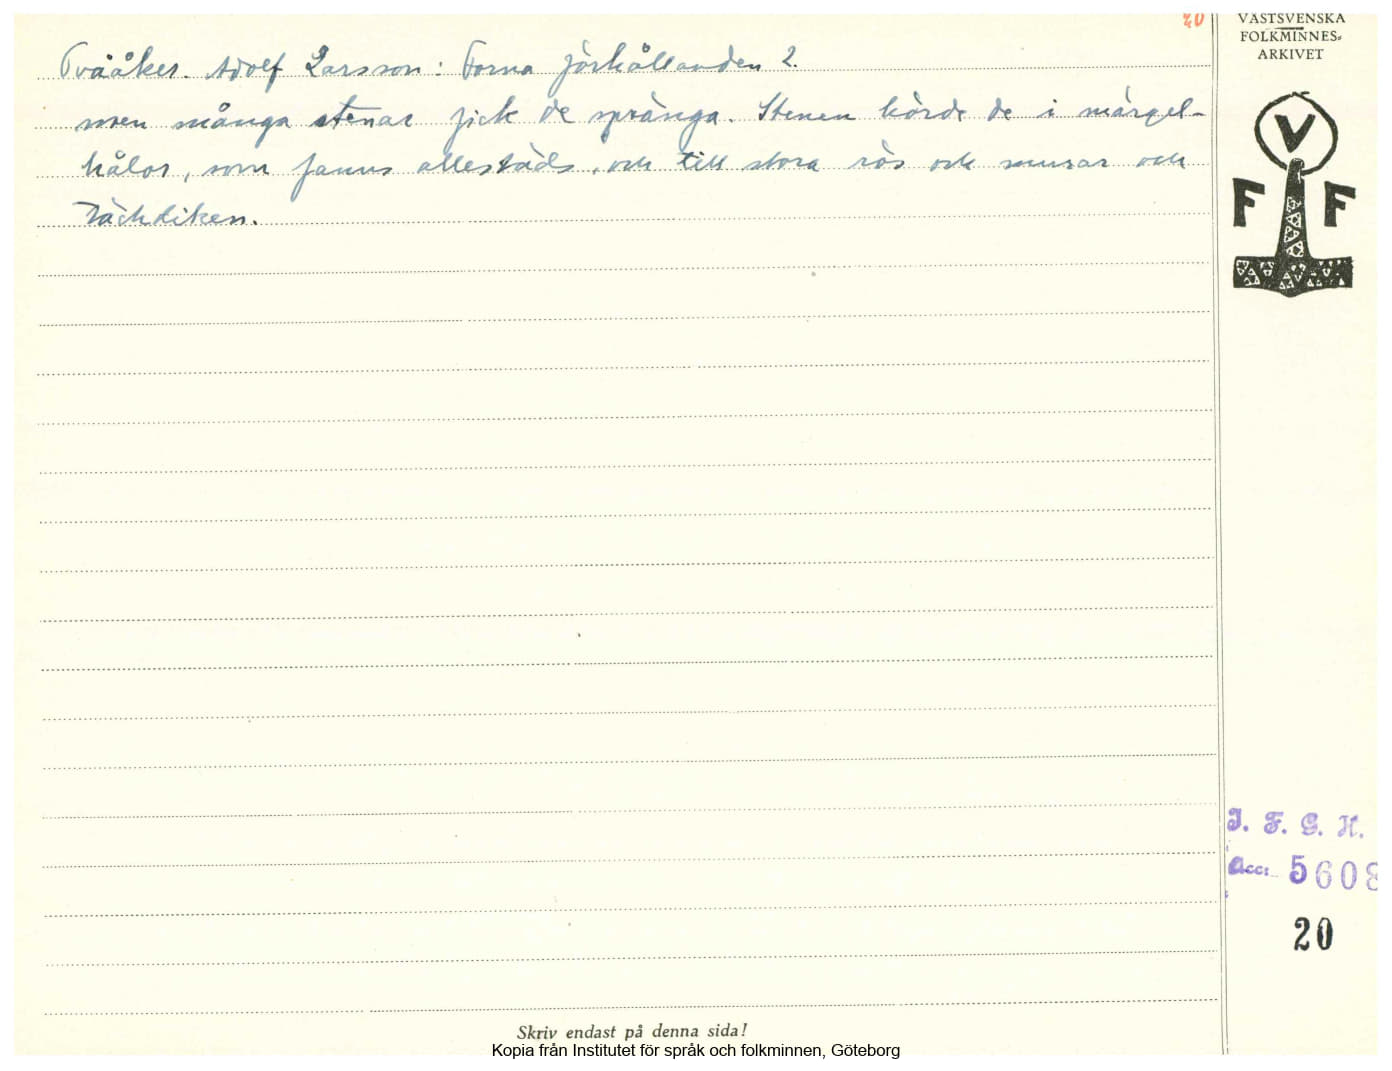 20
VÄSTSVENSKA
FOLKMINNES-
ARKIVET
Tvååker. Adolf Larsson: Forna förhållanden 2.
men många stenar fick de spränga. Stenen körde de i märgel-
hålor, som fanns allestäds, och till stora rös och murar och
täckdiken.
V
F F
I. F. G. H.
Acc: 5608
20
Skriv endast på denna sida!
Kopia från Institutet för språk och folkminnen, Göteborg